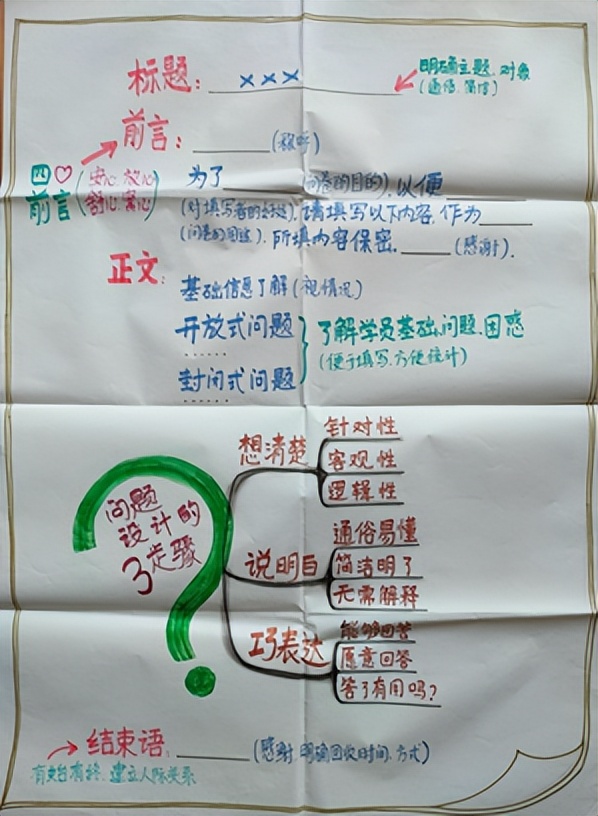 标题: ×××
明确主题、对象
(通俗、简洁)
前言: ______(称呼)
四♡
前言
(安心、放心
舒心、窝心)
为了______(问卷的目的), 以便______
(对填写者的好处), 请填写以下内容, 作为____
(问卷的用途), 所填内容保密。____(感谢).
正文:
基础信息了解(视情况)
开放式问题
封闭式问题
了解学员基础、问题、困惑
(便于填写、方便统计)
问题
设计的
3步骤
想清楚
针对性
客观性
逻辑性
说明白
通俗易懂
简洁明了
无需解释
巧表达
能够回答
愿意回答
答了有用吗?
结束语: ______(感谢、明确回收时间、方式)
有始有终、建立人际关系